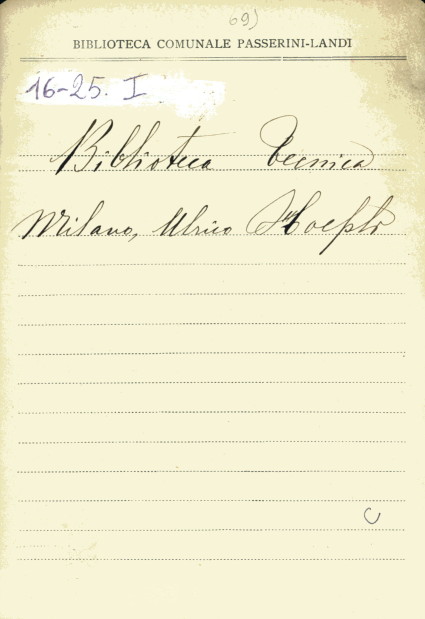 69)
BIBLIOTECA COMUNALE PASSERINI-LANDI
16-25. I
Biblioteca Tecnica
Milano, Ulrico Hoepli
C